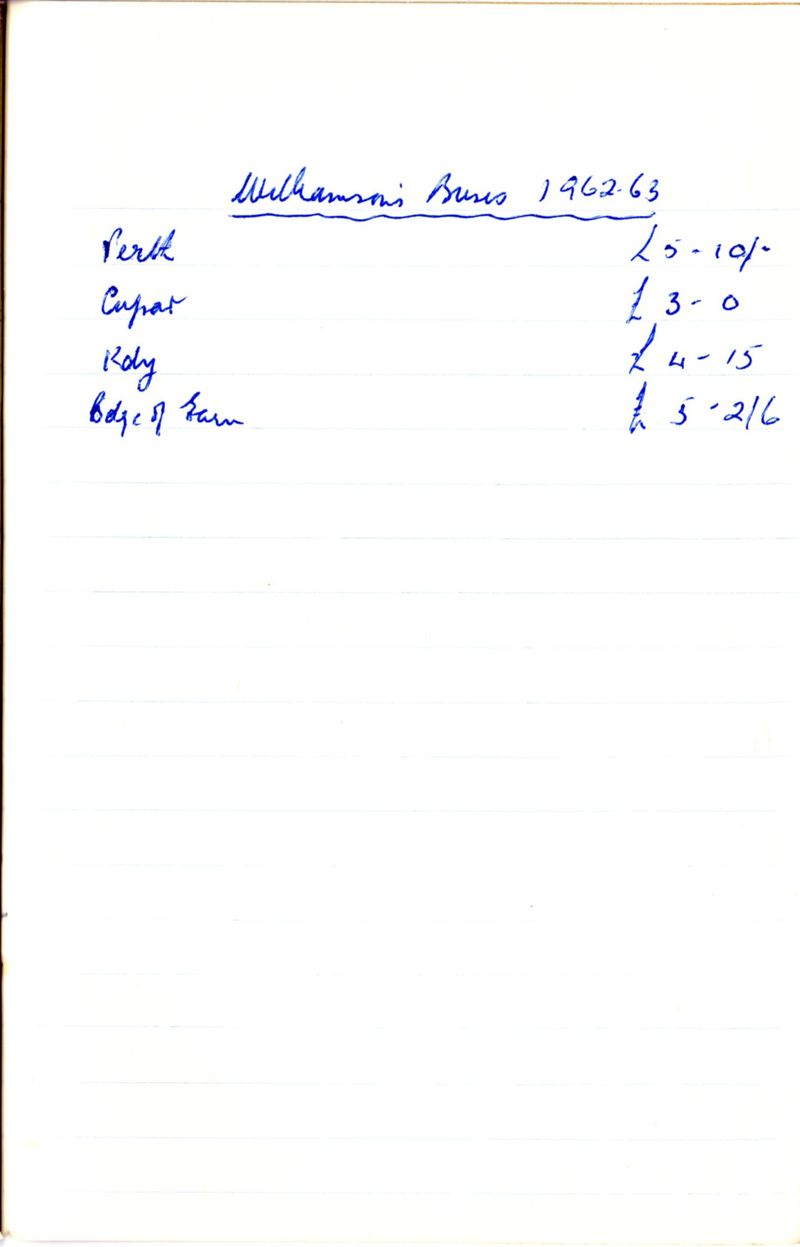 Williamson's Buses 1962-63
Perth £5-10/-
Cupar £3-0
Kdy £4-15
Bdge of Earn £5-2/6